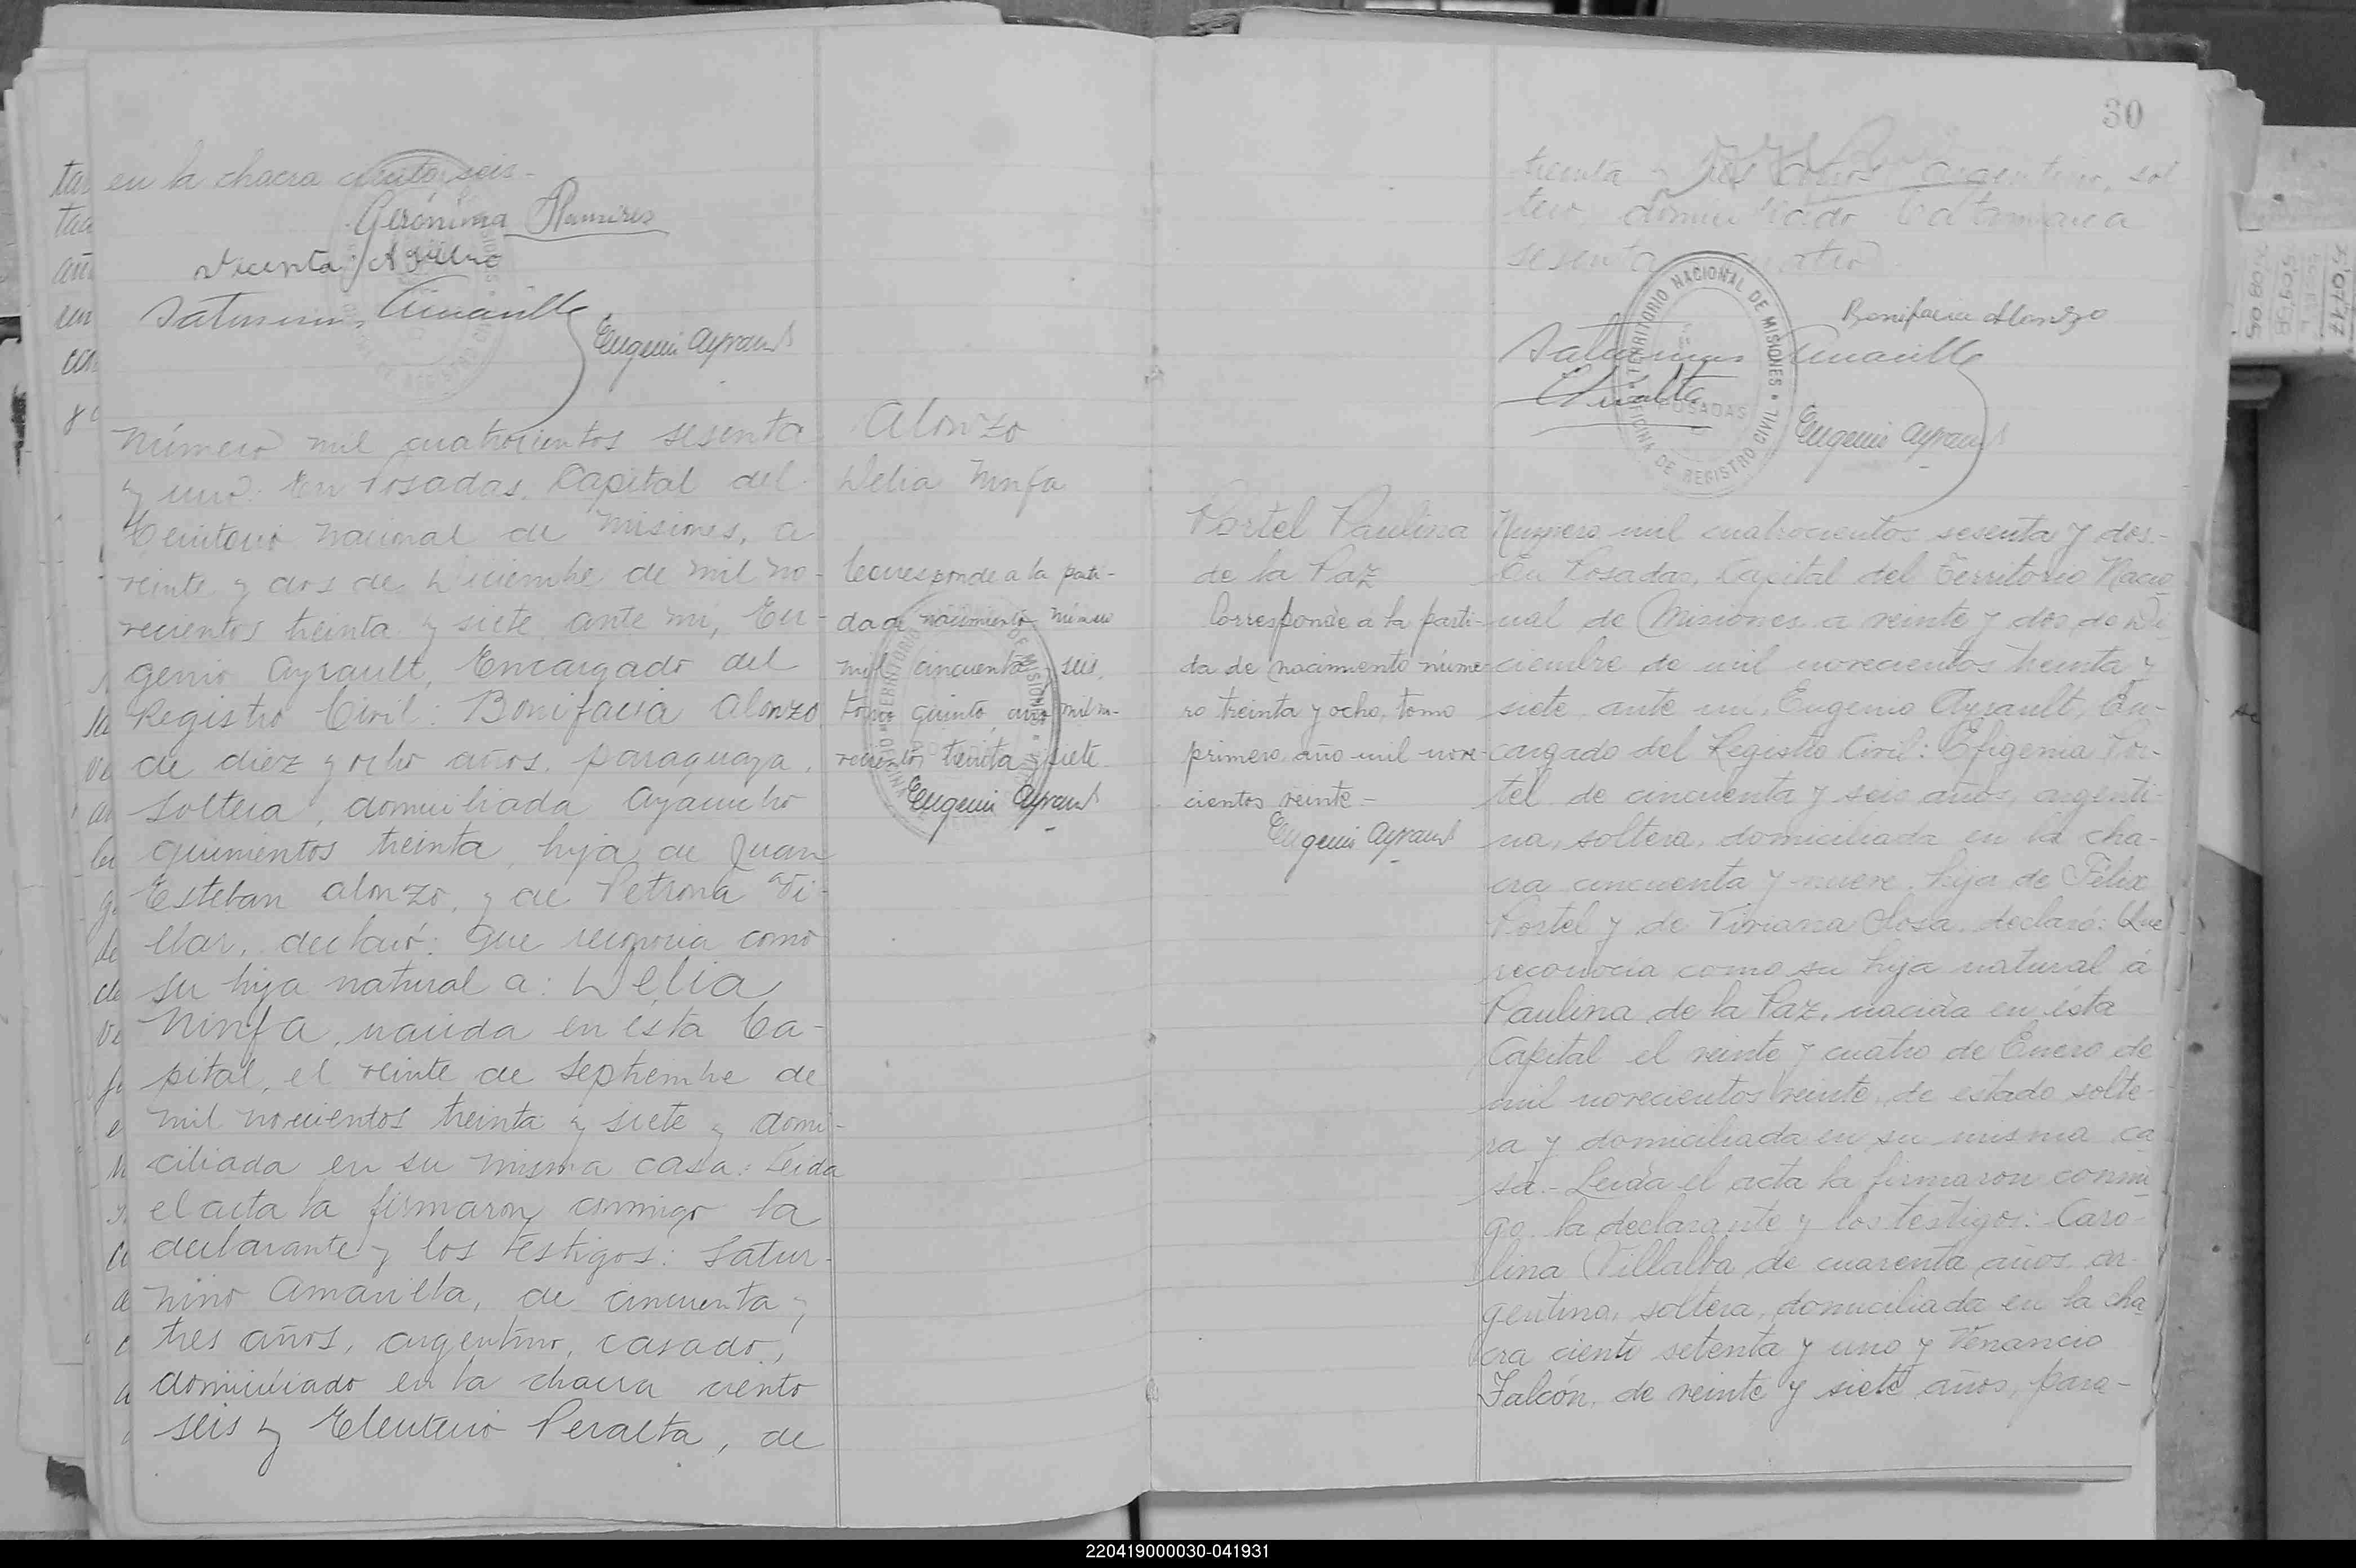 en la chacra ciento seis-
Gerónima Ramires
Vicenta Aguero
Saturnino Amarilla
Eugenio Ayrault
Número mil cuatrocientos sesenta
y uno: En Posadas, Capital del
Territorio Nacional de Misiones, a
veinte y dos de Diciembre de mil no-
vecientos treinta y siete, ante mi, Eu-
genio Ayrault, Encargado del
Registro Civil: Bonifacia Alonzo
de diez y ocho años, paraguaya,
soltera, domiciliada Ayacucho
quinientos treinta, hija de Juan
Esteban Alonzo, y de Petrona Vi-
llar, declaró: Que reconocia como
su hija natural a: Delia
Ninfa, nacida en ésta Ca-
pital, el veinte de Septiembre de
mil novecientos treinta y siete y domi-
ciliada en su misma casa: Leida
el acta la firmaron conmigo la
declarante y los testigos: Satur-
nino Amarilla, de cincuenta y
tres años, argentino, casado,
domiciliado en la chacra ciento
seis y Eleuterio Peralta, de
Alonzo
Delia Ninfa
Corresponde a la parti-
da de nacimiento número
mil cincuenta y seis,
tomo quinto, año mil no-
vecientos treinta y siete.
Eugenio Ayrault
30
treinta y tres años argentino, sol
tero domiciliado Catamarca
sesenta cuatro
TERRITORIO NACIONAL DE MISIONES
POSADAS
OFICINA DE REGISTRO CIVIL
Bonifacia Alonzo
Saturnino Amarilla
EPeralta
Eugenio Ayrault
Portel Paulina
de la Paz
Corresponde a la parti-
da de nacimiento núme-
ro treinta y ocho, tomo
primero, año mil nove-
cientos veinte-
Eugenio Ayrault
Numero mil cuatrocientos sesenta y dos.-
En Posadas, Capital del Territorio Nacio
nal de Misiones a veinte y dos de Di-
ciembre de mil novecientos treinta y
siete ante mi, Eugenio Ayrault, En-
cargado del Registro Civil: Efigenia Por-
tel de cincuenta y seis años, argenti-
na, soltera, domiciliada en la cha-
cra cincuenta y nueve, hija de Félix
Portel y de Viviana Sosa, declaró: Que
reconocia como su hija natural á
Paulina de la Paz, nacida en ésta
Capital el veinte y cuatro de Enero de
mil novecientos veinte, de estado solte-
ra y domiciliada en su misma ca
sa.- Leida el acta la firmaron conmi
go la declarante y los testigos: Caro-
lina Villalba de cuarenta años, ar-
gentina, soltera, domiciliada en la cha
cra ciento setenta y uno y Venancio
Falcón, de veinte y siete años, para-
220419000030-041931